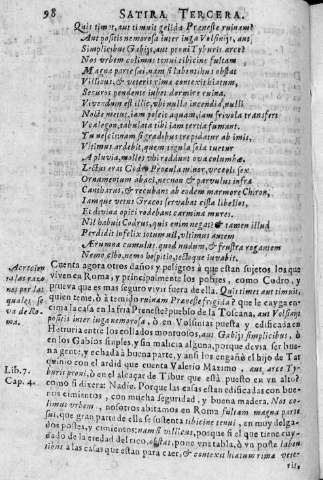 98 SATIRA TERCERA.
Quis timet, aut timuit gelida Præneste ruinam?
Aut positis nemorosa inter iuga Volsinijs, aut
Simplicibus Gabijs, aut proni Tyburis arce?
Nos vrbem colimus tenui tibicine fultam
Magna parte sui, nam si labentibus obstat
Villicus, & veteris rimæ contexit hiatum,
Securos pendente iubet dormire ruina.
Viuendum est illic, vbi nulla incendia, nulli
Nocte metus, iam poscit aquam, iam friuola transfert
Vcalegon, tabulata tibi iam tertia fumant.
Tu nescis, nam si gradibus trepidatur ab imis,
Vltimus ardebit, quem tegula sola tuetur
A pluuia, molles vbi reddunt oua columbæ.
Lectus erat Codro Procula minor, vrceoli sex
Ornamentum abaci, necnon & paruulus infra
Cantharus, & recubans eodem marmore Chiron,
Iamque vetus Græcos seruabat cista libellos,
Et diuina opici rodebant carmina mures.
Nil habuit Codrus, quis enim negat? & tamen illud
Perdidit infelix totum nil, vltimus autem
Ærumnæ cumulus, quod nudum, & frustra rogantem
Nemo cibo, nemo hospitio, tectoque iuuabit.
Cuenta agora otros daños y peligros à que están sujetos los que
viuen en Roma, y principalmente los pobres, como Codro, y
prueua que es mas seguro viuir fuera de ella. Quis timet aut timuit,
quien teme, ò à temido ruinam Præneste frigida? que le cayga en-
cima la casa en la fria Preneste? pueblo de la Toscana, aut Volsinijs
positis inter iuga nemorosa, ò en Volsinias puesta y edificada en
Hetruria entre los collados montuosos, aut Gabijs simplicibus, ò
en los Gabios simples, y sin malicia alguna, porque deuia ser bue-
na gente, y echada à buena parte, y ansi los engañò el hijo de Tar
quinio con el ardid que cuenta Valerio Maximo, aut, arce Ty-
buris proni, ò en el alcaçar de Tibur que está puesto en vn alto?
como si dixera: Nadie. Porque las casas estan edificadas con bue-
nos cimientos, con mucha seguridad, y buena madera. Nos co-
limus vrbem, nosotros abitamos en Roma fultam magna parte
sui, que gran parte de ella se sustenta tibicine tenui, en muy delga-
dos postes, y cimientos: nam si villicus, porque si el que tiene cuy-
dado de la eredad del rico, obstat, pone vna tabla, ò va poste laben-
tibus à las casas que estan para caer, & contexit hiatum rimæ vete-
ris,
Lib. 7.
Cap. 4.